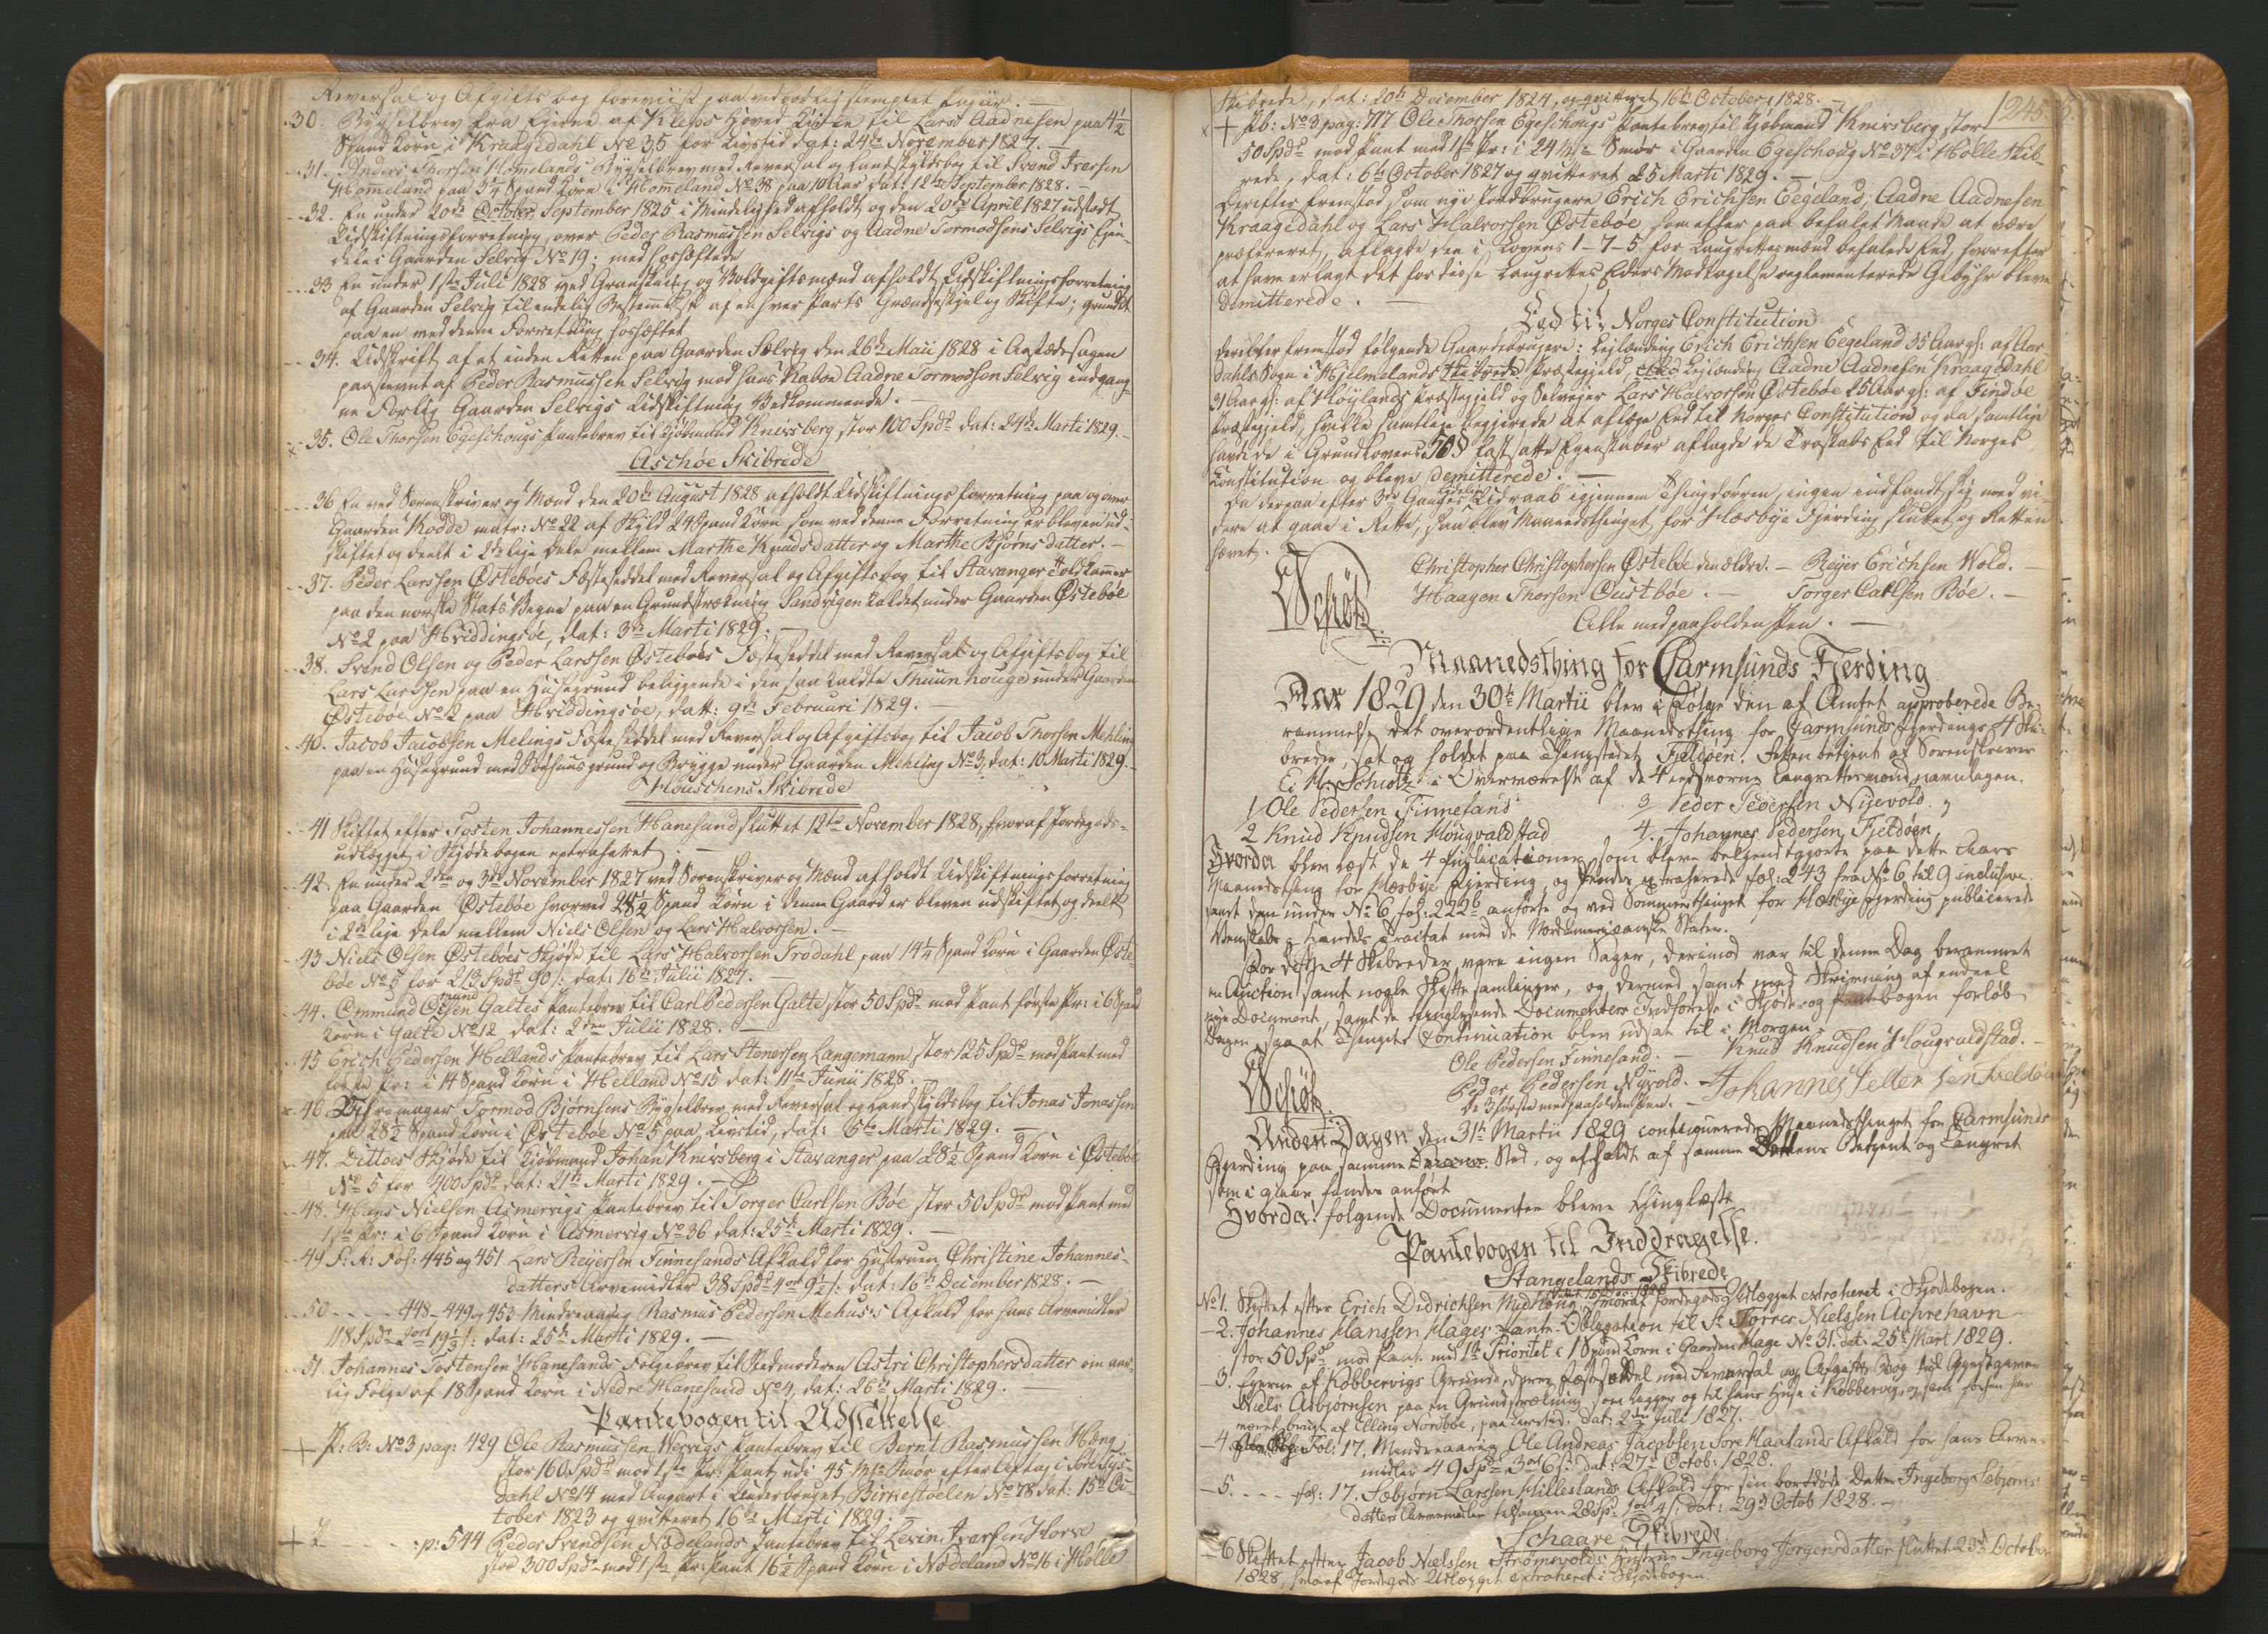 Reversal og Afgifts bog foreviist paa vedbørlig stemplet Papiir. —
30. Bygselbrev fra Eierne af Kleps Hoved Kirke til Lars Aadnesen paa 4½
Spand Korn i Kraagedahl No 35 for Livstid dat: 24de November 1827. —
31. Anders Thorsen Homelands Bygselbrev med Reversal og Landskyldsbog til Svend Iversen
Homeland paa 3¼ Spand Korn i Homeland No 38 paa 10 Aar dat: 12te September 1828. —
32. En under 20de October September 1825 i Mindelighed afholdt og den 20de April 1827 udstædt
Udskiftningsforretning, over Peder Rasmussen Selvigs og Aadne Tormodsens Selvigs Eien-
dele i Gaarden Selvig No 19; med Forhæftede
33 En under 1ste Juli 1828 ved Granskning og Voldgiftsmænd afholdt Udskiftningsforretning
af Gaarden Selvig til endelig Bestemmelse af enhver Parts Grændseskjel og Skifte; grundet
paa en ved denne Forretning forhæftet
34. Udskrift af et inden Retten paa Gaarden Selvig den 26de Maii 1828 i Aastædssagen
paastevnt af Peder Rasmussen Selvig mod hans Naboe Aadne Tormodsen Selvig indgang-
ne Forlig Gaarden Selvigs Udskiftning Vedkommende. —
x 35. Ole Thorsen Egeschougs Pantebrev til Kjøbmand Knirsberg stor 100 Spd. dat: 24de Marti 1829. —
Aschøe Skibrede
36 En ved Sorenskriver og Mænd den 20de August 1828 afholdt Udskiftningsforretning paa og over
Gaarden Hodde matr: No 22 af Skyld 24 Spand Korn som ved denne Forretning er bleven ud-
skiftet og deelt i 2de lige Dele mellem Marthe Knudsdatter og Marthe Bjørnsdatter. —
37. Peder Larssen Østebøes Fæsteseddel med Reversal og Afgiftsbog til Stavanger Toldkammer
paa den norske Stats Vegne paa en Grundstrækning Sandvigen kaldet under Gaarden Østebøe
No 2 paa Hviddingsøe, dat: 3die Marti 1829. —
38. Svend Olsen og Peder Larssen Østebøes Fæsteseddel med Reversal og Afgiftsbog til
Lars Larssen paa en Husegrund beliggende i den saa kaldte Thuunhouge under Gaarden
Østebøe No 2 paa Hviddingsøe, dat: 9de Februari 1829. —
40. Jacob Jacobsen Melings Fæsteseddel med Reversal og Afgiftsbog til Jacob Thorsen Mehling
paa en Husegrund med Søehuusgrund og Brygge under Gaarden Mehling No 3, dat: 10 Marti 1829. —
Houschens Skibrede
41 Skiftet efter Tosten Johannessen Hanesand sluttet 12te November 1828, hvoraf Jordegods-
udlægget i Skjødebogen extraheret. —
42 En under 2den og 3die November 1827 ved Sorenskriver og Mænd afholdt Udskiftningsforretning
paa Gaarden Østebøe hvorved 28½ Spand Korn i denne Gaard er bleven udskiftet og deelt
i 2de lige Dele mellem Niels Olsen og Lars Halvorsen. —
43 Niels Olsen Østebøes Skjøde til Lars Halvorsen Frodahl paa 14¼ Spand Korn i Gaarden Øste-
bøe No 5 for 213 Spd. 90 s. dat: 16de Julii 1827. —
44. Ommund Olsen Galtes Pantebrev til Carl Pedersen Galte, stor 50 Spd. mod Pant første Pr: i 6 Spand
Korn i Galte No 12 dat: 2den Julii 1828. —
45 Erich Pedersen Hellands Pantebrev til Lars Stenersen Langemann stor 125 Spd. mod Pant med
første Pr: i 14 Spand Korn i Helland No 15 dat: 11te Junii 1828. —
x 46 Tormod Bjørnsens Bygselbrev med Reversal og Landskyldsbog til Jonas Jonassen
paa 28½ Spand Korn i Østebøe No 5 paa Livstid, dat: 6te Marti 1829. —
47. Dittoes Skjøde til Kjøbmand Johan Knirsberg i Stavanger paa 28½ Spand Korn i Østebøe
No 5 for 400 Spd. dat: 21de Marti 1829. —
48. Hans Nielsen Asmervigs Pantebrev til Torger Carlsen Bøe stor 50 Spd. mod Pant med
1ste Pr: i 6 Spand Korn i Asmervig No 36 dat: 25de Marti 1829. —
49 P: A: Fol: 445 og 451 Lars Reiersen Finnesands Afkald for Hustruen Christine Johannes-
datters Arvemidler 38 Spd. 4 ort 9½ s. dat: 16de December 1828. —
50 - - - - 448-449 og 453 Mindreaarig Rasmus Pedersen Mehus's Afkald for hans Arvemidler
118 Spd. 2 ort 19⅓ s. dat: 25de Marti 1829. —
51 Johannes Tostensen Hanesands Følgebrev til Stedmoderen Astri Christophersdatter om aar-
lig Følge af 18 Spand Korn i Nedre Hanesand No 4, dat: 26de Marti 1829. —
Pantebogen til Udslettelse.
+ P: B: No 3 pag: 429 Ole Rasmussen Wervigs Pantebrev til Bernt Rasmussen Høeg
stor 160 Spd. mod 1ste Pr: Pant udi 45 Mk Smør efter Aftag i Søre Lys-
dahl No 14 med Anpart i Underbruget Birkestøelen No 78 dat: 15de Oc-
tober 1823 og qvitteret 16de Marti 1829. —
+ 2 - - - :p: 544 Peder Svendsen Nødelands Pantebrev til Levin Iversen Horre
stor 300 Spd. mod 1ste Pr: Pant 16½ Spand Korn i Nødeland No 16 i Hølle
Skibrede, dat: 20de December 1824, og qvitteret 16de October 1828. —
245.
x + Pb: No 3 pag: 717 Ole Thorsen Egeschougs Pantebrev til Kjøbmand Knirsberg stor
50 Spd. mod Pant med 1ste Pr: i 24 Mk Smør i Gaarden Egeschoug No 37 i Hølle Skib-
rede, dat: 6te October 1827 og qvitteret d 5 Marti 1829. —
Derefter fremstod som nye Jordbrugere Erich Erichsen Eegeland, Aadne Aadnesen
Kraagedahl og Lars Halvorssen Østebøe, som efter paa befalet Maade at være
præfereret, aflagde den i Lovens 1-7-5 for Laugrettesmænd befalede Eed hvorefter
at have erlagt det for disse Laugrettes Eeders Modtagelse reglementerede Gebyhr bleve
Demitterede. —
Eed til Norges Constitution
Derefter fremstod følgende Gaardebrugere: Leilænding Erich Erichsen Eegeland 35 Aar gl: af Aar
dahls Sogn i Hjelmelands Skibrede Præstegjeld, Leilænding Aadne Aadnesen Kraagedahl
31 Aar gl: af Høylands Præstegjeld og Selveier Lars Halvorssen Østebøe 25 Aar gl: af Findøe
Præstegjeld, hvilke samtlige begjærede at aflægge Eed til Norges Constitution og da samtlige
havde de i Grundlovens 50 § fastsatte Egenskaber aflagde de Troskabs Eed til Norges
Constitution og bleve Demitterede. —
Da derpaa efter 3de Ganges Udraab igjennem Thingdørren, ingen indfandt sig med vi-
dere at gaae i Rette, saa blev Maanedsthinget for Hæsbye Fjerding sluttet og Retten
hævet.
Schiøtz
Christopher Christophersen Østebøe den ældre. — Reyer Erichsen Wold. —
Haagen Thorsen Oustbøe. — Torger Carlsen Bøe. —
Alle med paaholden Pen. —
Maanedsthing for Carmsunds Fjerding
Aar 1829 den 30te Martii blev i Følge den af Amtet approberede Be-
rammelse det overordentlige Maanedsthing for Carmsunds Fjerdings 4 Ski-
breder, sat og holdet paa Thingstedet Fjeldøen. Retten betjent af Sorenskriver
E. M. Schiøtz i Overværelse af de 4 eedsvorne Laugrettesmænd navnlagen.
1 Ole Pedersen Finnesand
3 Peder Pedersen Nyevold
2 Knud Knudsen Hougvaldstad
4. Johannes Pedersen Fjeldøen
Hvorda blev læst de 4 Publicationer som bleve bekjendtgjorte paa dette Aars
Maanedsthing for Hæsbye Fjerding, og findes extraherede fol: 243 fra No 6 til 9 inclusive.
samt den under No 6 fol: 222b anførte og ved Sommerthinget for Hæsbye Fjerding publicerede
Venskabs og Handels Tractat med de Nordamericanske Stater.
For disse 4 Skibreder vare ingen Sager, derimod var til denne Dag berammet
en Auction samt nogle Skiftesamlinger, og dermed samt med Skrivning af endeel
nye Document, samt de tinglysende Documenters Indførelse i Skjøde- og Pantebogen forløb
Dagen, saa at Thingets Continuation blev udsat til i Morgen.
Schiøtz
Ole Pedersen Finnesand. — Knud Knudsen Hougvaldstad. —
Peder Pedersen Nyvold. — Johannes Peller sen Fieldøen
De 3 første med paaholden Pen. —
Anden Dagen den 31te Martii 1829 continuerede Maanedsthinget for Carmsunds
Fjerding paa samme Sted, og afholdt af samme Rettens Betjent og Laugret
som i Gaar findes anført
Hvorda! følgende Documenter bleve thinglæste
Pantebogen til Inddragelse.
Stangelands Skibrede
No 1. Skiftet efter Erich Didrichsen Midhoug, hvoraf Jordegods Udlægget extraheret i Skjødebogen.
- 2. Johannes Hanssen Hages Pante-Obligation til Sr Torres Nielssen Achrehavn
stor 50 Spd. mod Pant med 1te Prioritet i 1 Spand Korn i Gaarden Hage No 31. dat: 25de Mart 1829.
- 3. Eierne af Kobbervigs Grunds, deres Fæstesæddel med Reversal og Afgifts Bog til Gjestgiver
Niels Asbjørnsen paa en Grundstrækning som ligger op til hans Huse i Kobbervig, og som forhen har
været brugt af Elling Nordbøe, paa Livstid. dat: 2den Juli 1827.
- 4 Fol: 17. Mindreaarig Ole Andreas Jacobsen Søre Haalands Afkald for hans Arve-
midler 49 Spd. 3 ort 6 s. dat: 27de Octob: 1828.
- 5. - - - - fol: 17. Sæbjørn Larssen Hilleslands Afkald for sin bortdøde Datter Ingeborg Sæbjørns
datters Arvemidler tilsammen 28 Spd. 1 ort 4 s. dat: 29de Octob 1828. —
Schaare Skibrede
- 6 Skiftet efter Jacob Nielssen Strømsvolds Hustrue Ingeborg Jørgensdatter sluttet 23de October
1828, hvoraf Jordegods Udlægget extraheret i Skjødebogen.